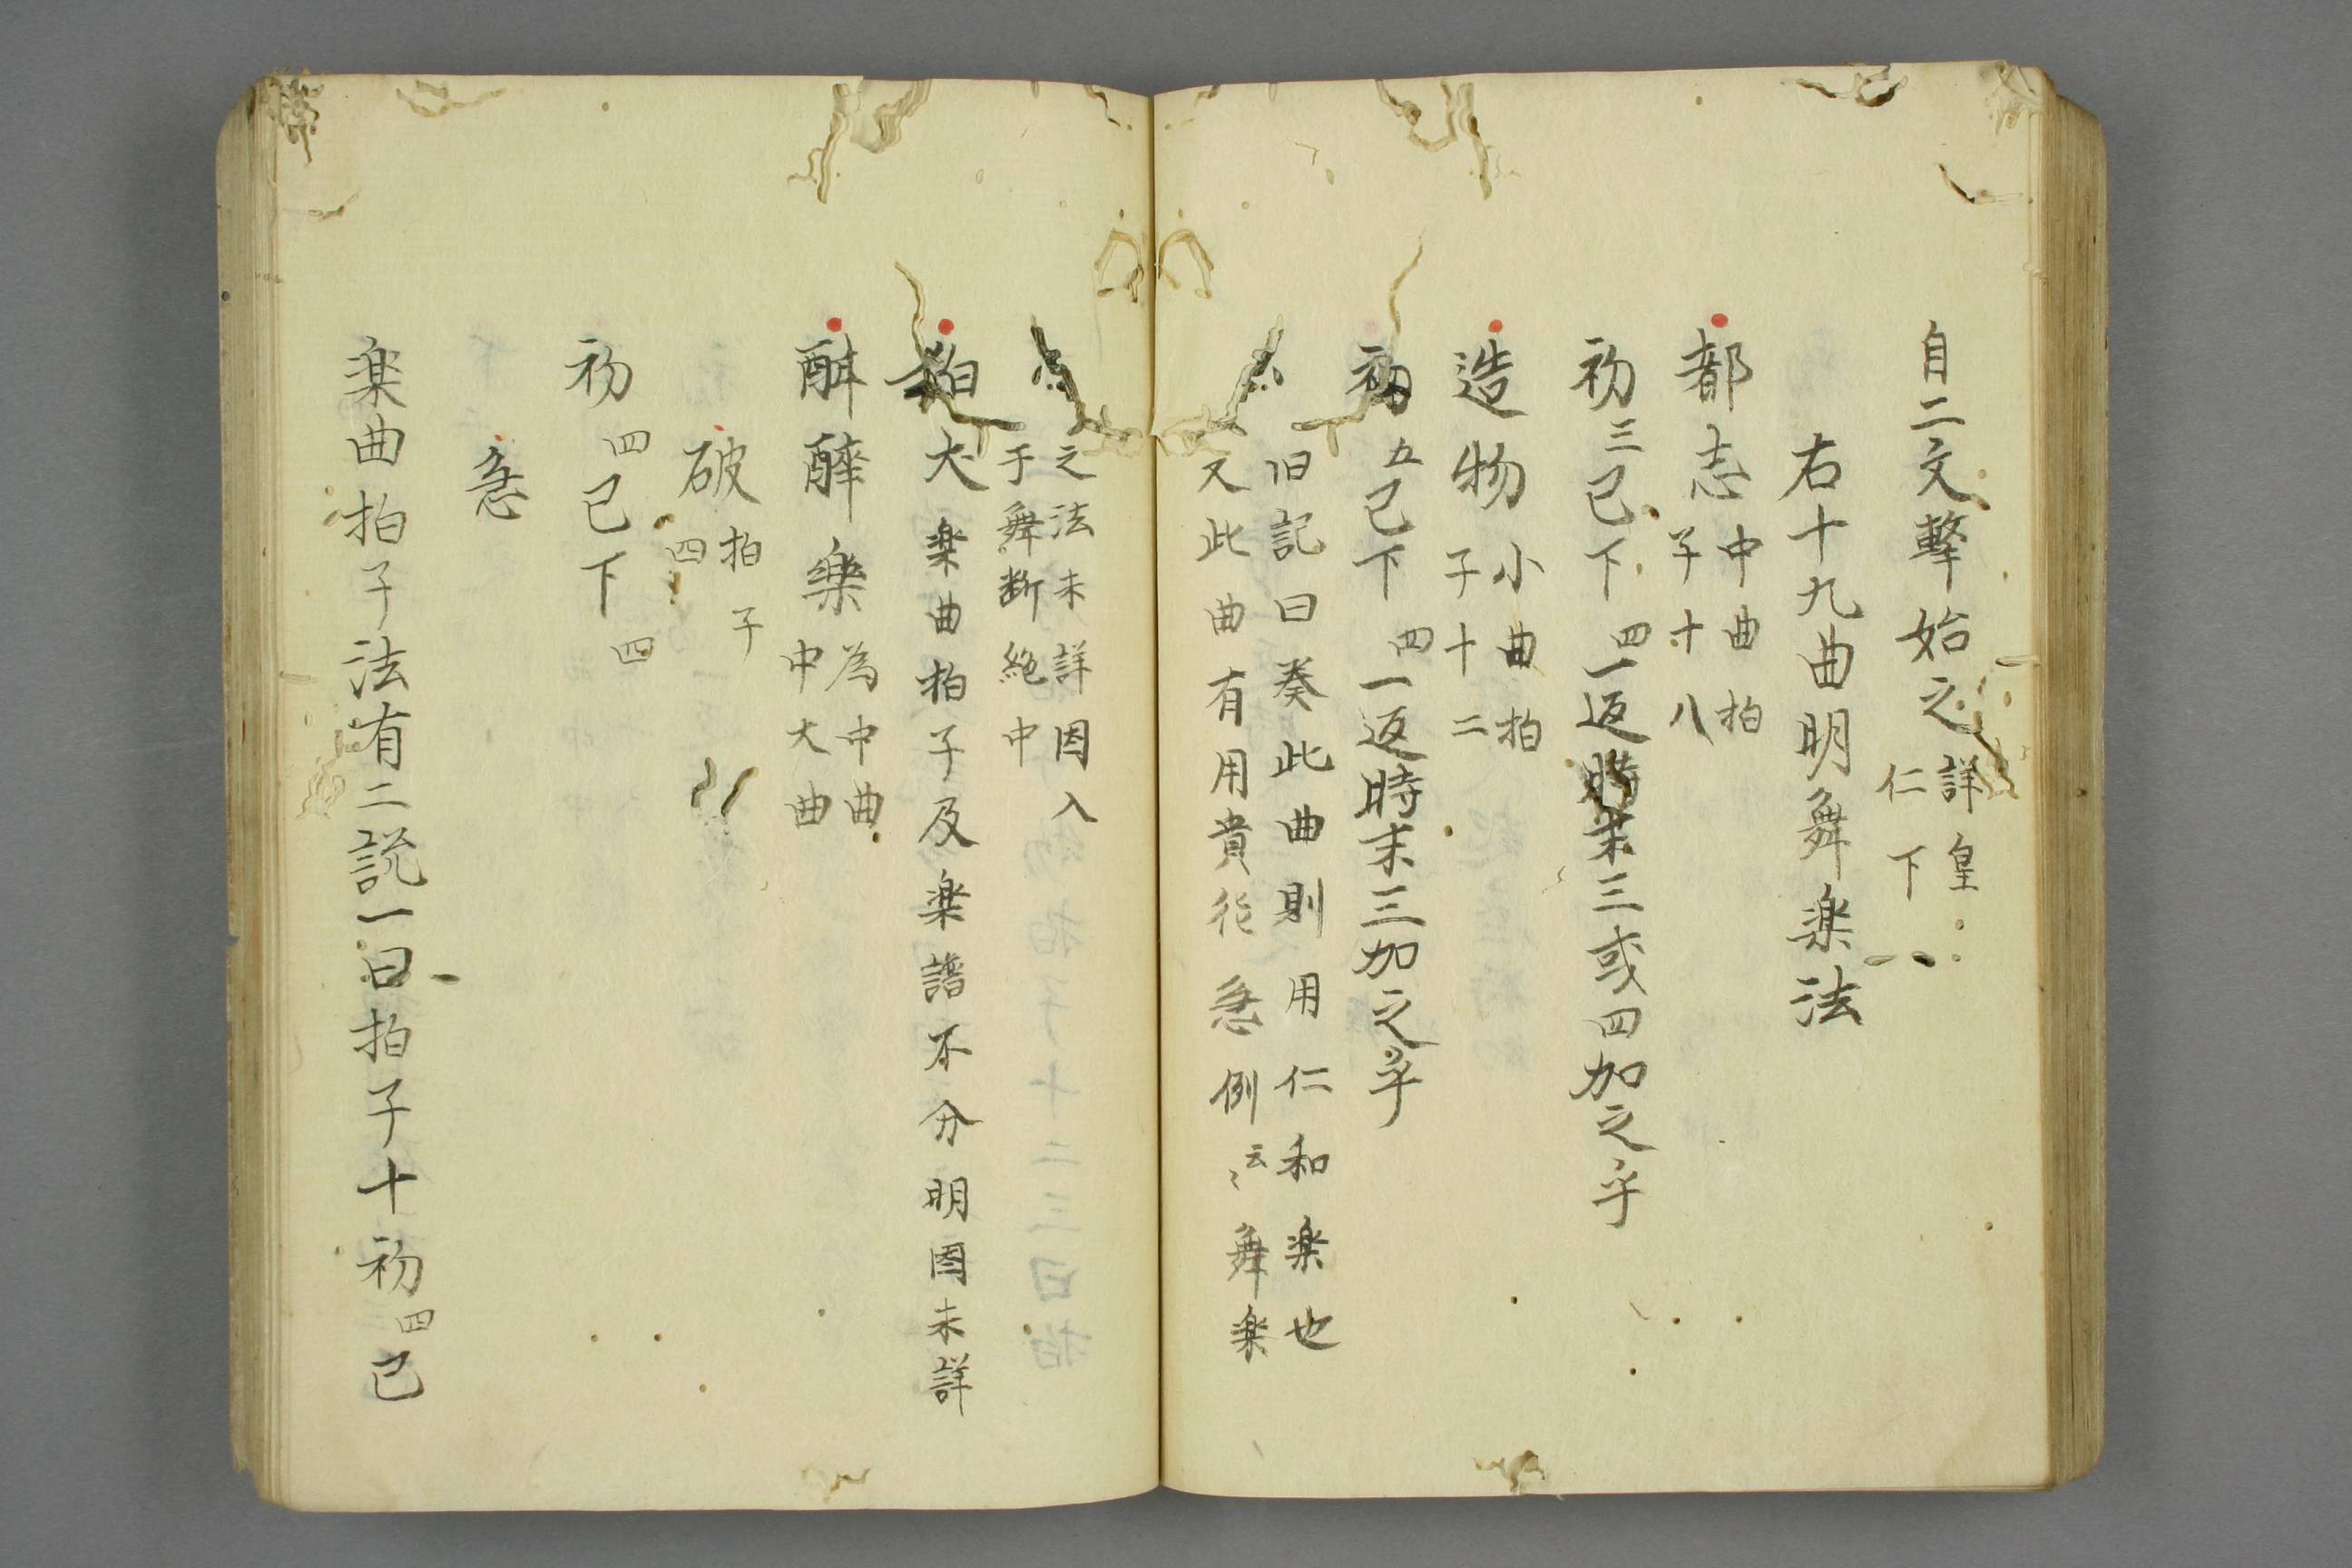 自二文擊始之詳皇
仁下
右十九曲明舞楽法
都志中曲拍
子十八
初三已下四一返時末三或四加之乎
造物小曲拍
子十二
初五已下四一返時末三加之乎
旧記曰奏此曲則用仁和楽也
又此曲有用貴徳急例云〻舞楽
之法未詳因入
于舞断絶中
狛犬楽曲拍子及楽譜不分明因未詳
酣醉樂為中曲
中大曲
破拍子
四
初四已下四
急
楽曲拍子法有二説一曰拍子十初四已